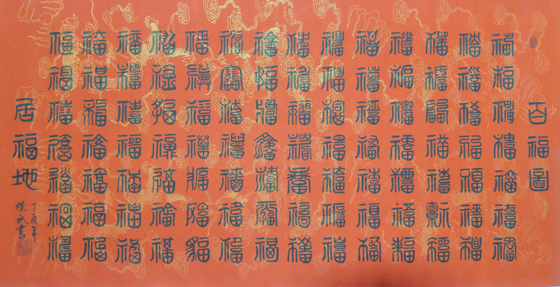 百福圖
福福福福福福福
福福福福福福福
福福福福福福福
福福福福福福福
福福福福福福福
福福福福福福福
福福福福福福福
福福福福福福福
福福福福福福福
福福福福福福福
福福福福福福福
福福福福福福福
福福福福福福福
福福福福福福福
居福地
丁年
書